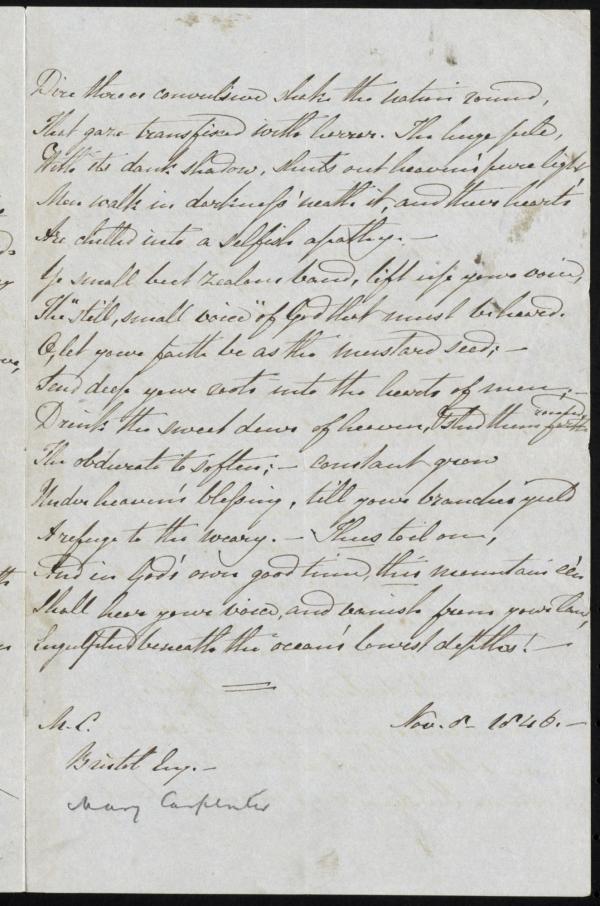 Dire throes convulsive shake the nation round,
That gaze transfixed with horror. The huge pile,
With its dank shadow, shuts out heaven's pure light
Men walk in darkness 'neath it, and their hearts
Are chilled into a selfish apathy. —
Ye small but zealous band, lift up your voice,
The "still, small voice" of God that must be heard.
O, let your faith be as the mustard seed; —
Send deep your roots into the hearts of men; —
Drink the sweet dews of heaven, & shed them forth
The obdurate to soften; — constant grow
Under heaven's blessing, till your branches yield
A refuge to the weary. — Thus toil on,
And in God's own good time, this mountain e'en
Shall hear your voice, and vanish from your land,
Engulphed beneath the ocean's lowest depths! —
M. C.
Nov. 8 - 1846. —
Bristol Eng. —
Mary Carpenter